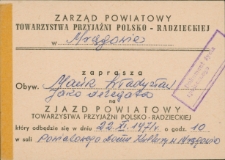 ZARZĄD POWIATOWY
TOWARZYSTWA PRZYJAŹNI POLSKO - RADZIECKIEJ
w Mrągowie
zaprasza
Obyw. Maśk Władysław
jako delegata
na
ZJAZD POWIATOWY
TOWARZYSTWA PRZYJAŹNI POLSKO - RADZIECKIEJ
który odbędzie się w dniu 22.XI.1971r. o godz. 10
w sali Powiatowego Domu Kultury w Mrągowie